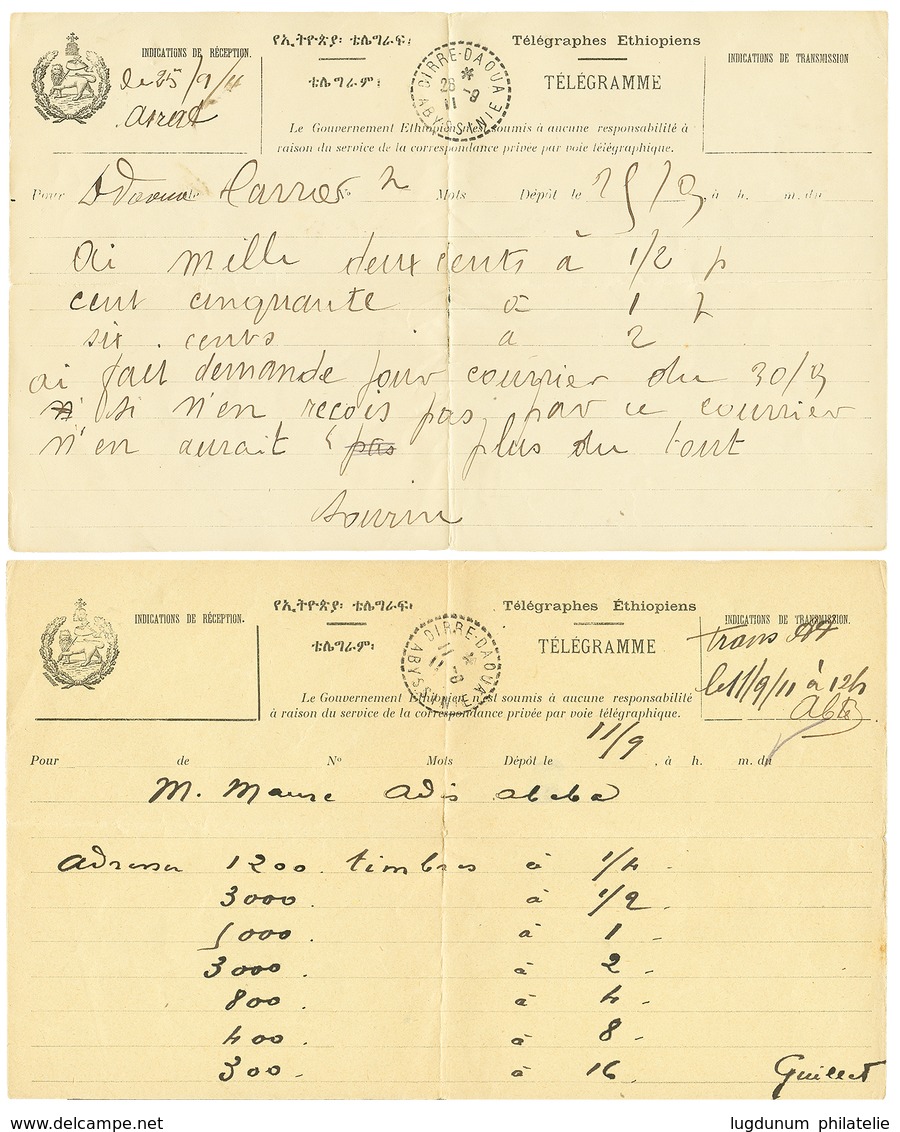 INDICATIONS DE RÉCEPTION.
le 25/9/11
የኢትዮጵያ፡ ቴሌግራፍ፡
ቴሌግራም፡
Télégraphes Ethiopiens
TÉLÉGRAMME
INDICATIONS DE TRANSMISSION
DIRRE-DAOUA
26 -9
11
ABYSSINIE
Le Gouvernement Ethiopien n'est soumis à aucune responsabilité à
raison du service de la correspondance privée par voie télégraphique.
Pour de Harrar No Mots Dépôt le 25/9, à h. m. du
ai mille deux cents à 1/2 p
cent cinquante à 1
six cents a 2
ai fait demande pour courrier du 30/9
n' si n'en reçois pas, par ce courrier
n'en aurait pas plus du tout
INDICATIONS DE RÉCEPTION.
የኢትዮጵያ፡ ቴሌግራፍ፡
ቴሌግራም፡
Télégraphes Éthiopiens
TÉLÉGRAMME
INDICATIONS DE TRANSMISSION.
trans
le 11/9/11 à 12h
DIRRE-DAOUA
11 -9
11
ABYSSINIE
Le Gouvernement Ethiopien n'est soumis à aucune responsabilité
à raison du service de la correspondance privée par voie télégraphique.
Pour de No Mots Dépôt le 11/9, à h. m. du
M. Adis ababa
adresser 1200 timbres à 1/4
3000. à 1/2
1000. à 1
3000. à 2
800. à 4
400. à 8
300 à 16
Guillet
www.delcampe.net
lugdunum philatelie